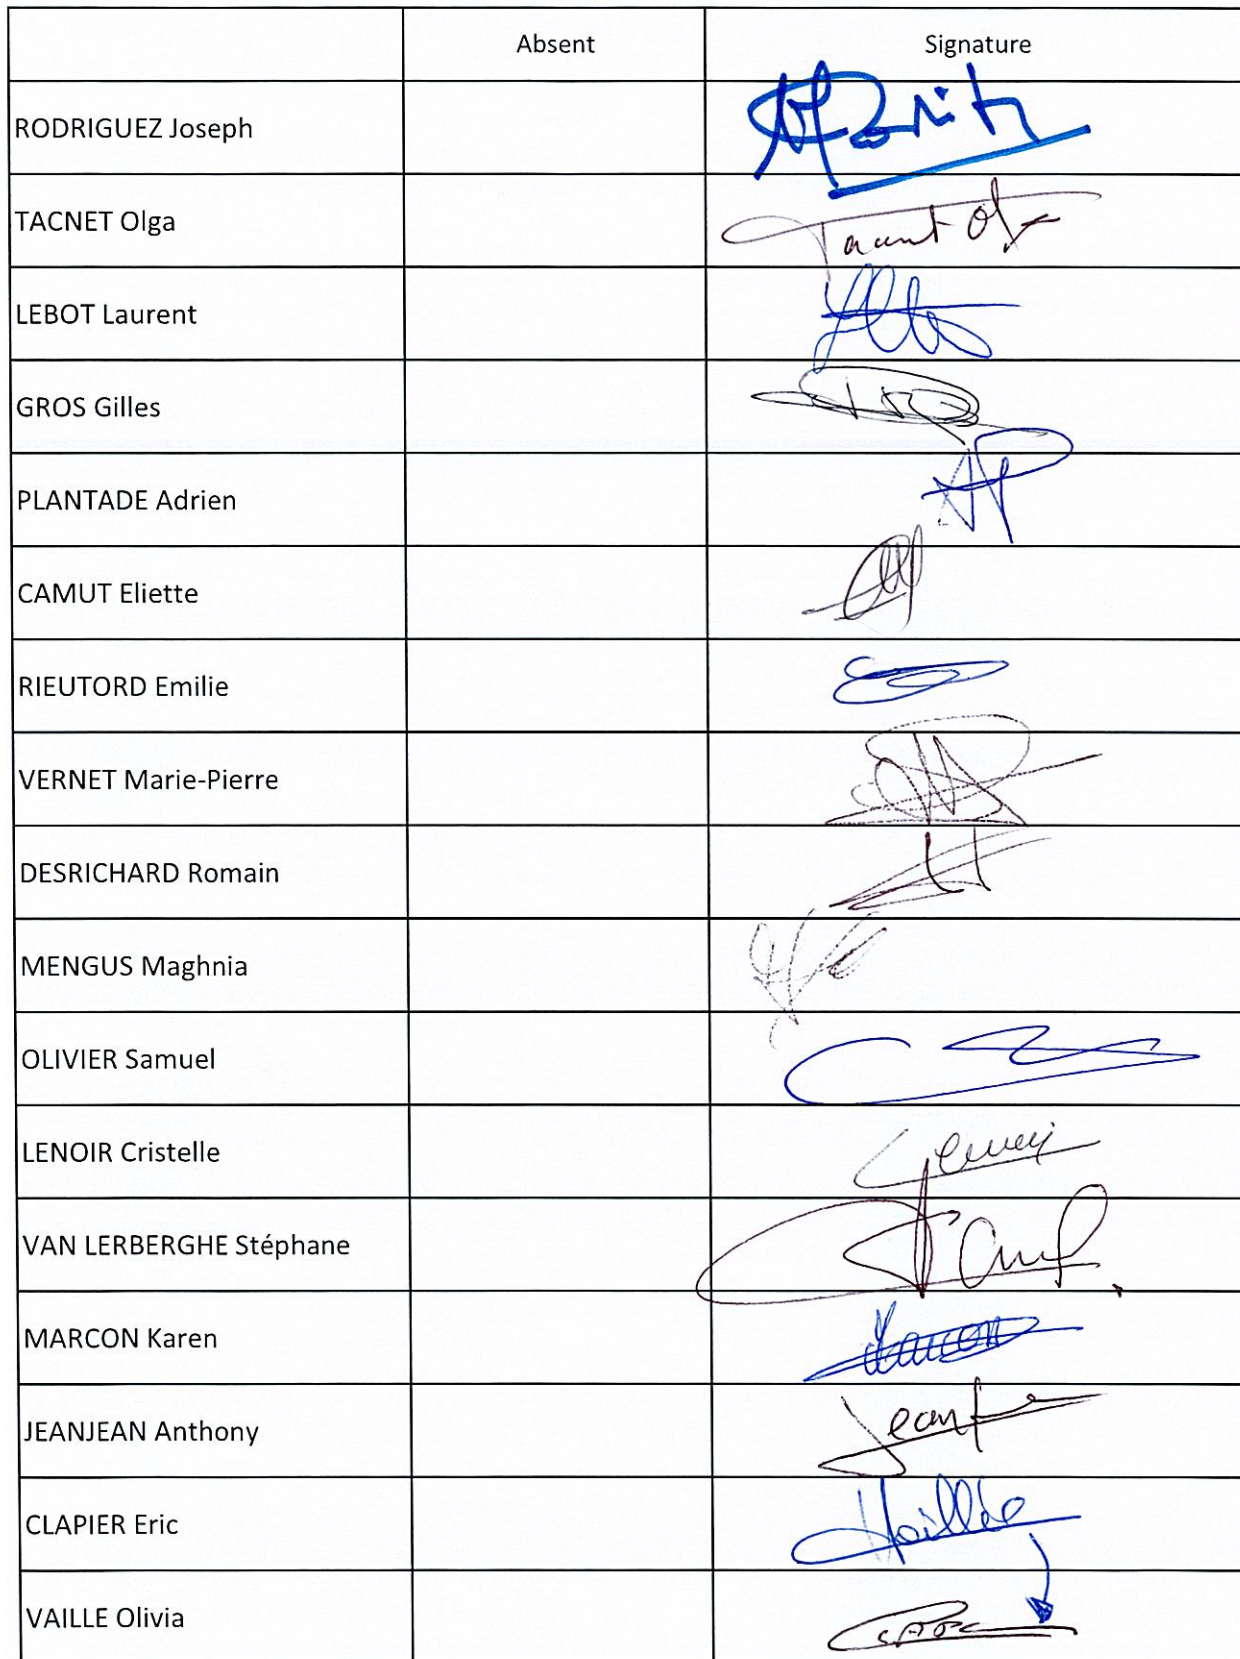 Absent Signature
RODRIGUEZ Joseph
TACNET Olga Tacnet Olga
LEBOT Laurent
GROS Gilles
PLANTADE Adrien AP
CAMUT Eliette
RIEUTORD Emilie
VERNET Marie-Pierre
DESRICHARD Romain
MENGUS Maghnia
OLIVIER Samuel
LENOIR Cristelle
VAN LERBERGHE Stéphane
MARCON Karen
JEANJEAN Anthony
CLAPIER Eric
VAILLE Olivia